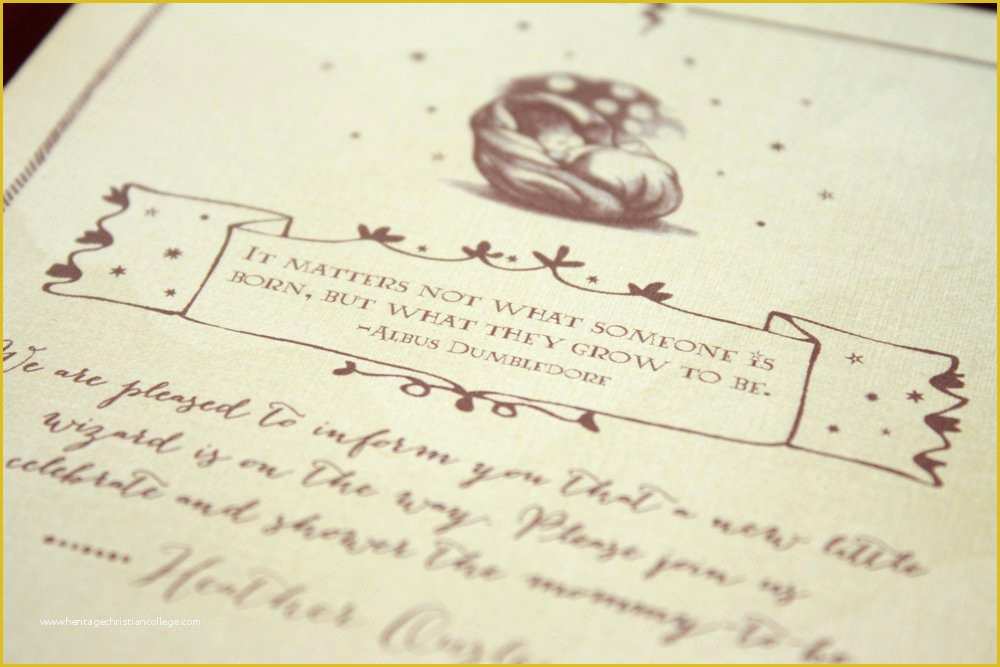 It matters not what someone is
born, but what they grow to be.
-Albus Dumbledore
We are pleased to inform you that a new little
wizard is on the way. Please join us
celebrate and shower the mommy-to-be
Heather
www.heritagechristiancollege.com